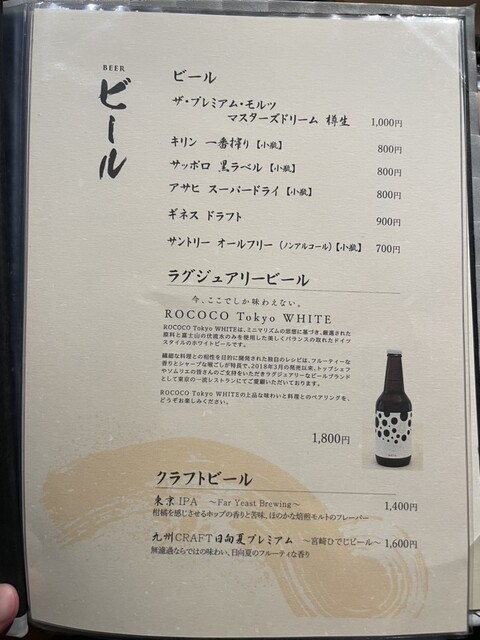 BEER
ビール
ビール
ザ・プレミアム・モルツ
マスターズドリーム 樽生 1,000円
キリン 一番搾り【小瓶】 800円
サッポロ 黒ラベル【小瓶】 800円
アサヒ スーパードライ【小瓶】 800円
ギネス ドラフト 900円
サントリー オールフリー (ノンアルコール)【小瓶】 700円
ラグジュアリービール
今、ここでしか味わえない。
ROCOCO Tokyo WHITE
ROCOCO Tokyo WHITEは、ミニマリズムの思想に基づき、厳選された
原料と富士山の伏流水のみを使用した美しくバランスの取れたドイツ
スタイルのホワイトビールです。
繊細な料理との相性を目的に開発された独自のレシピは、フルーティーな
香りとシャープな喉ごしが特長で、2018年3月の発売以来、トップシェフ
やソムリエの皆さんのご支持をいただきラグジュアリーなビールブランド
として東京の一流レストランにてご愛顧いただいております。
ROCOCO Tokyo WHITEの上品な味わいと料理とのペアリングを、
どうぞお楽しみください。
1,800円
クラフトビール
東京IPA ～Far Yeast Brewing～ 1,400円
柑橘を感じさせるホップの香りと苦味、ほのかな焙煎モルトのフレーバー
九州CRAFT日向夏プレミアム ～宮崎ひでじビール～ 1,600円
無濾過ならではの味わい、日向夏のフルーティな香り